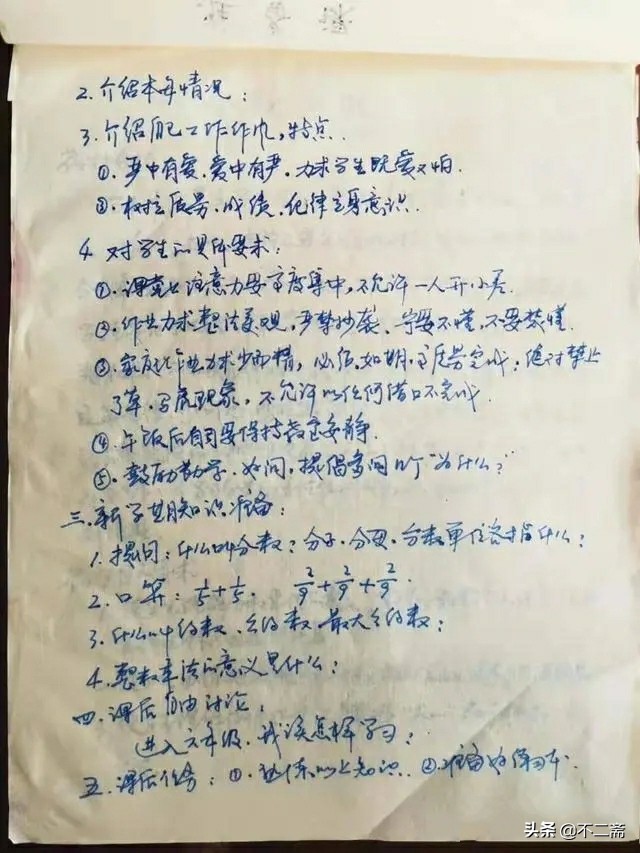 2. 介绍本年情况：
3. 介绍自己工作作风，特点.
①. 严中有爱. 爱中有严. 力求学生既爱又怕.
②. 树立质量. 成绩. 纪律主身意识.
4. 对学生的具体要求：
①. 课堂上注意力要高度集中，不允许一人开小差.
②. 作业力求整洁美观，严禁抄袭、宁要不懂，不要装懂.
③. 家庭作业力求少而精，必须，如期，高质量完成；绝对禁止
了草，马虎现象，不允许以任何借口不完成.
④. 午饭后自习要保持教室安静.
⑤. 鼓励勤学. 好问，提倡多问几个“为什么？”
三. 新学期知识准备：
1. 提问：什么叫分数？分子. 分母. 分数单位各指什么？
2. 口算：1/5+1/5. 2/9+2/9+2/9.
3. 什么叫约数、公约数、最大公约数；
4. 整数乘法的意义是什么；
四. 课后自由讨论：
进入六年级. 我该怎样学习；
五. 课后任务：①. 以上知识. ②. 准备好练习本.
头条 @不二斋